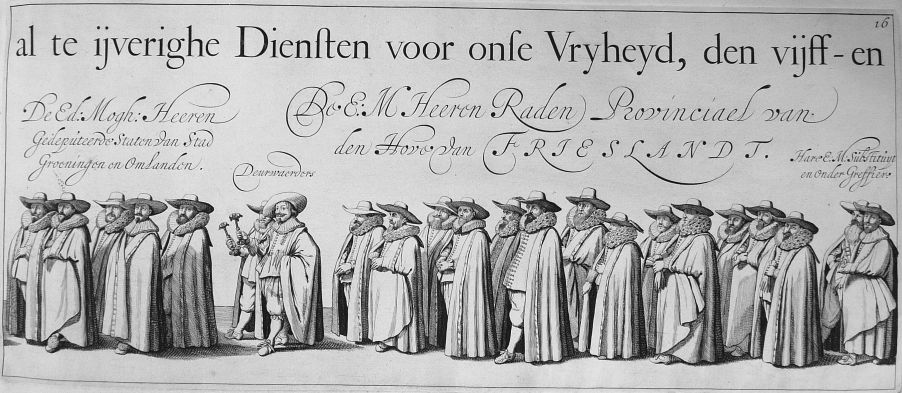 16
al te ijverighe Dienſten voor onſe Vryheyd, den vijff-en
De Ed: Mogh: Heeren
Gedeputeerde Staten van Stad
Groeningen en Omlanden.
Deurwaerders
De E: M Heeren Raden Provinciael van
den Hove van FRIESLANDT.
Hare E. M. Substituyt
en onder Greffiers